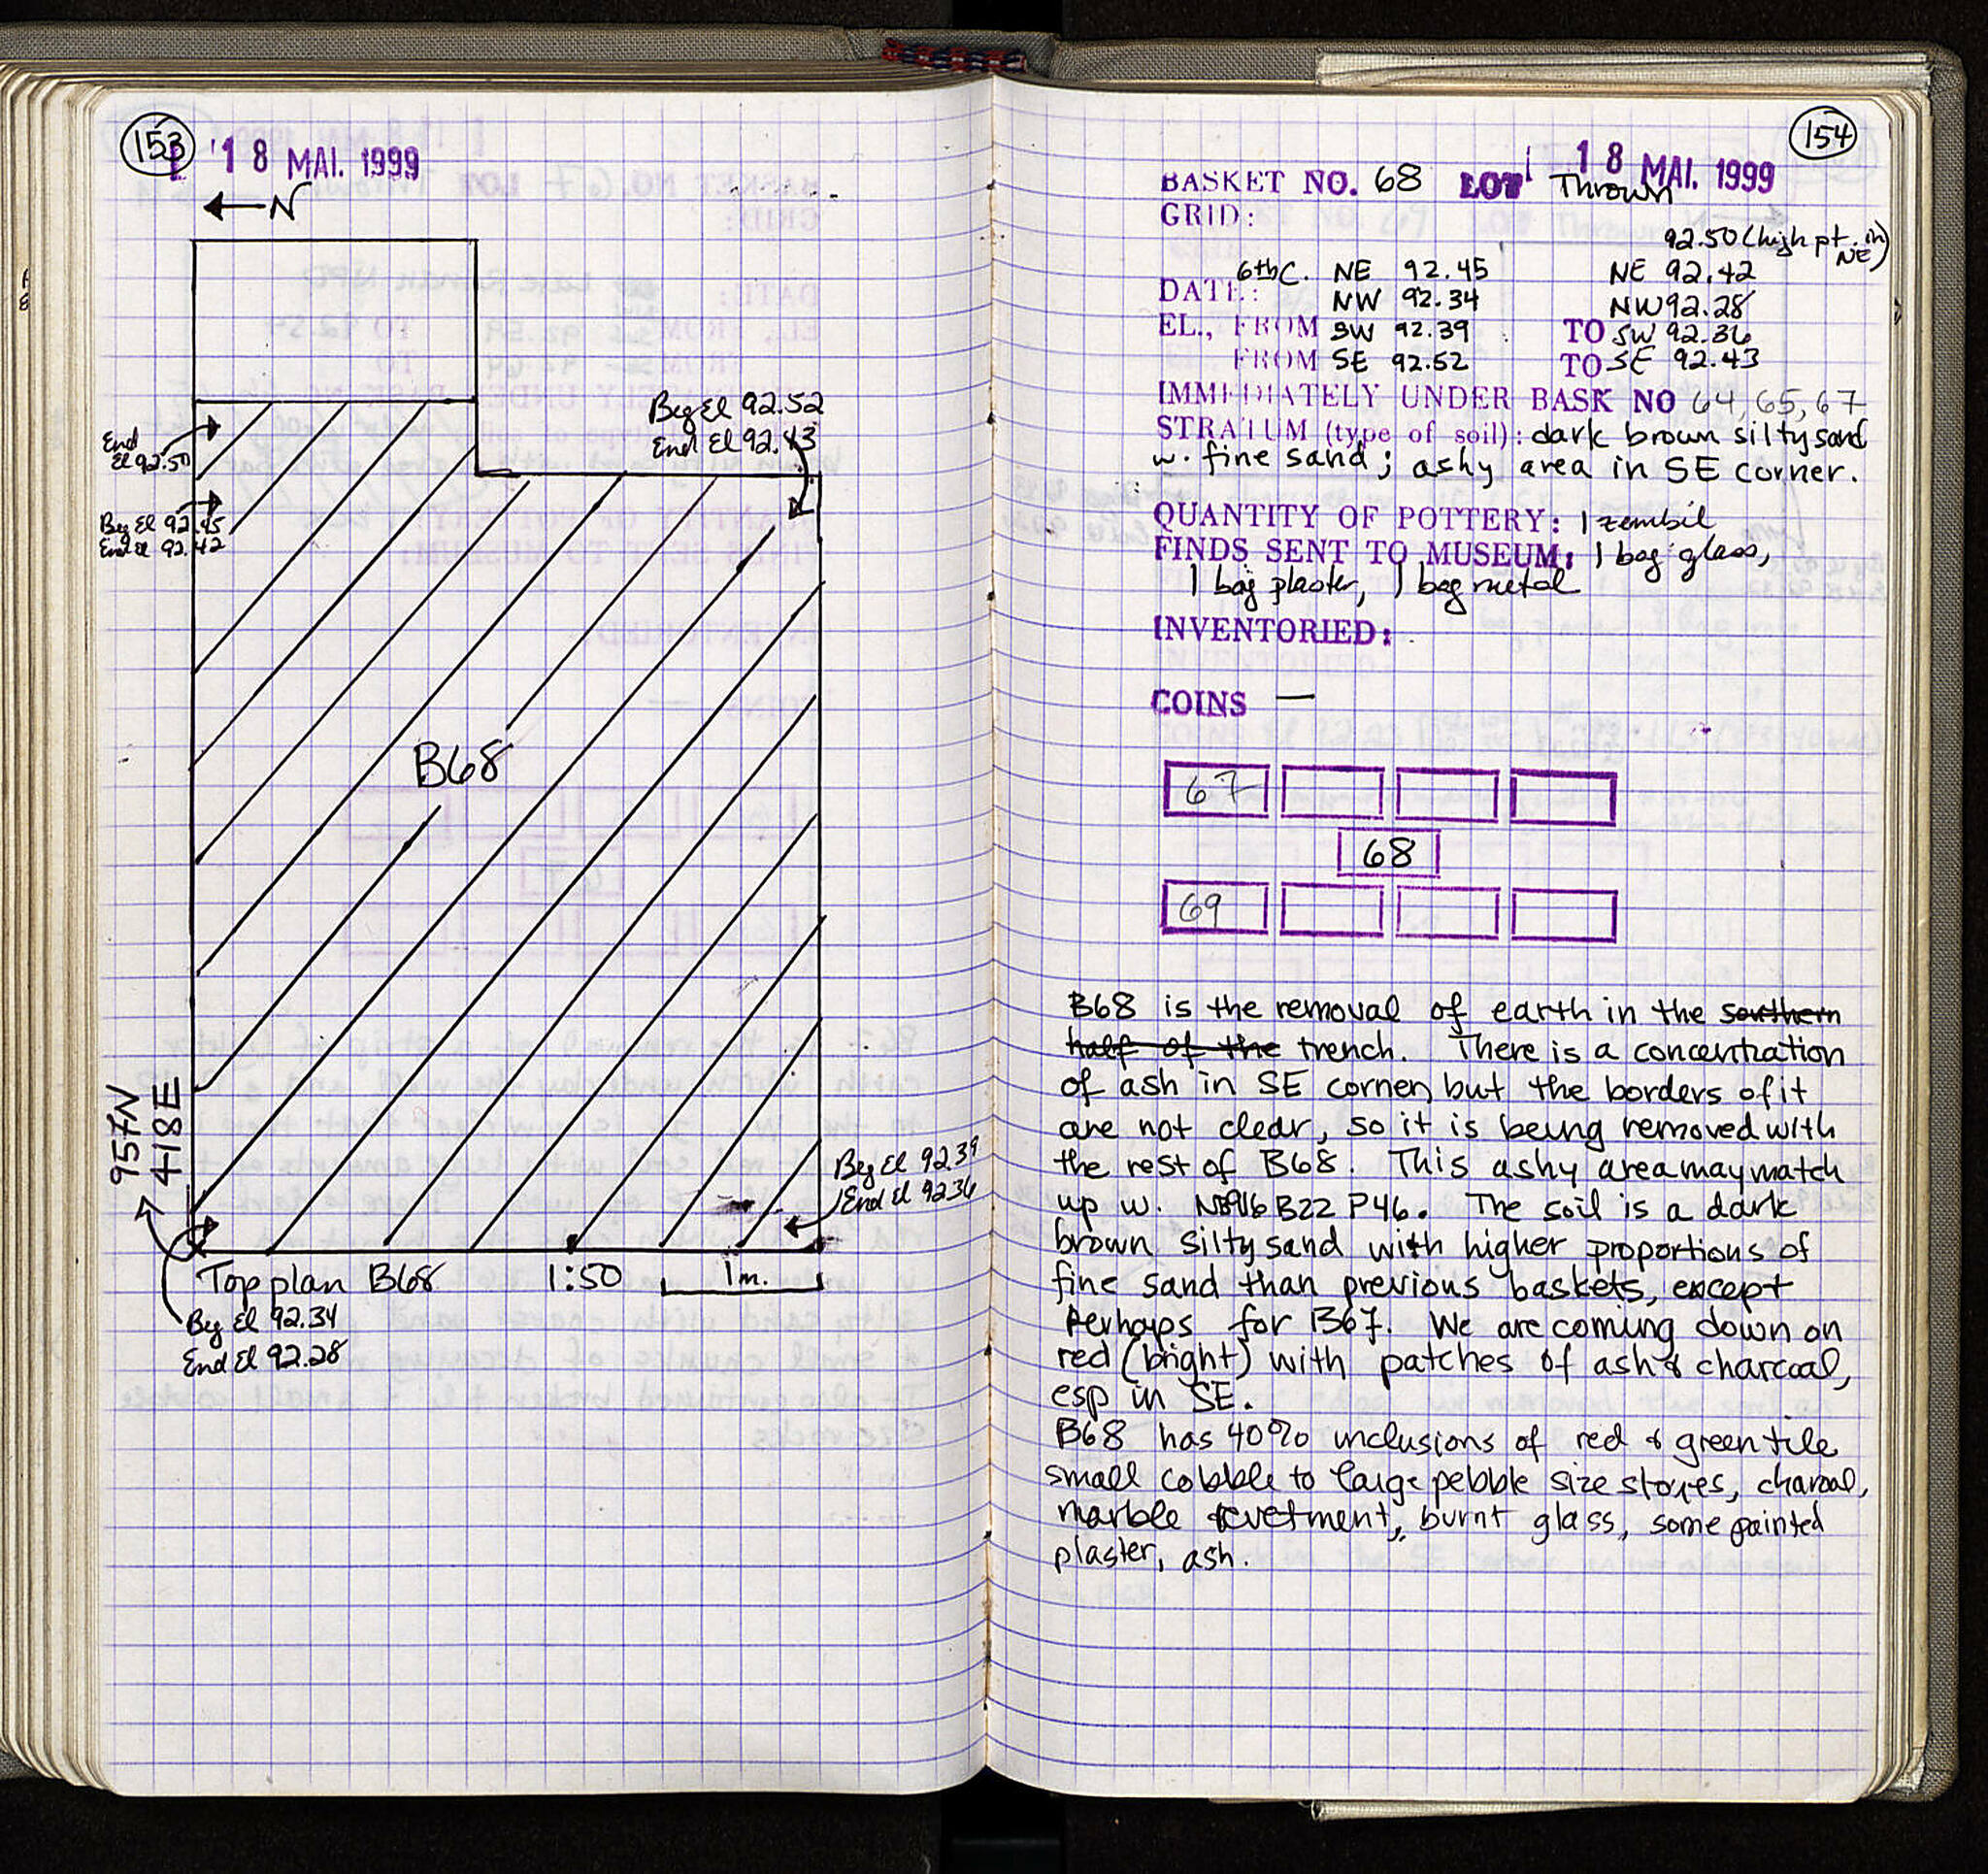 153
18 MAI. 1999
← N
Beg El 92.52
End El 92.43
End
El 92.50
Beg El 92.45
End El 92.42
B68
957N
418E
Beg El 92.39
End El 92.36
Top plan B68 1:50 1m.
Beg El 92.34
End El 92.28
154
18 MAI. 1999
BASKET NO. 68 LOT Thrown
GRID:
92.50 (high pt. in NE)
6th C. NE 92.45 NE 92.42
DATE: NW 92.34 NW 92.28
EL., FROM SW 92.39 TO SW 92.36
FROM SE 92.52 TO SE 92.43
IMMEDIATELY UNDER BASK NO 64, 65, 67
STRATUM (type of soil): dark brown silty sand
w. fine sand; ashy area in SE corner.
QUANTITY OF POTTERY: 1 zembil
FINDS SENT TO MUSEUM: 1 bag glass,
1 bag plaster, 1 bag metal
INVENTORIED:
COINS —
67
68
69
B68 is the removal of earth in the southern
half of the trench. There is a concentration
of ash in SE corner, but the borders of it
are not clear, so it is being removed with
the rest of B68. This ashy area may match
up w. B22 P46. The soil is a dark
brown silty sand with higher proportions of
fine sand than previous baskets, except
perhaps for B67. We are coming down on
red (bright) with patches of ash & charcoal,
esp in SE.
B68 has 40% inclusions of red & green tile
small cobble to large pebble size stones, charcoal,
marble revetment, burnt glass, some painted
plaster, ash.